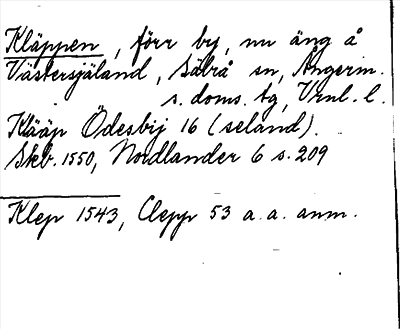 Kläppen, förr by, nu äng å
Västersjäland, Säbrå sn, Ångerm.
s. doms. tg, Vrnl. l.
Klääp Ödesbij 16 (seland).
Skb. 1550, Nordlander 6 s. 209
Klep 1543, Clepp 53 a. a. anm.